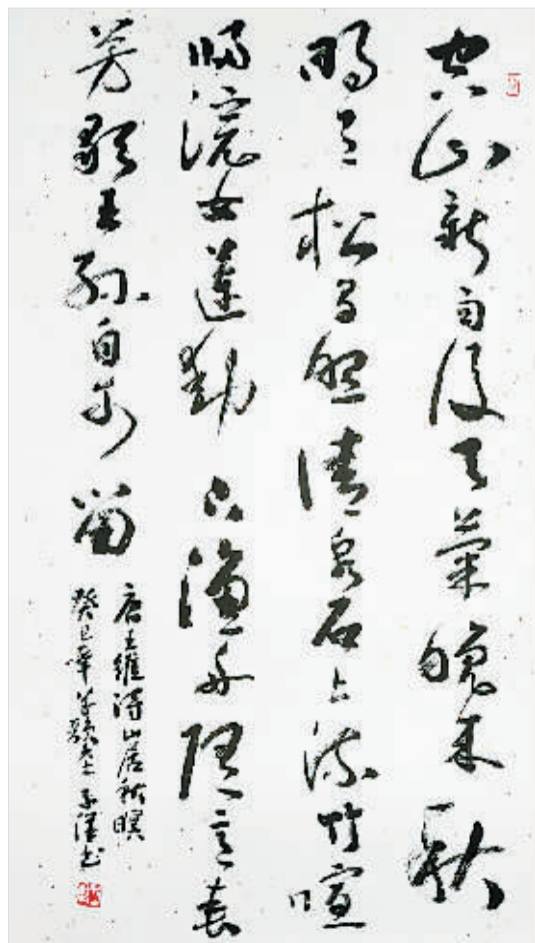 空山新雨後天氣晚来秋
明月松間照清泉石上流竹喧
歸浣女蓮動下漁舟隨意春
芳歇王孫自可留
唐王維詩山居秋暝
癸巳年 書